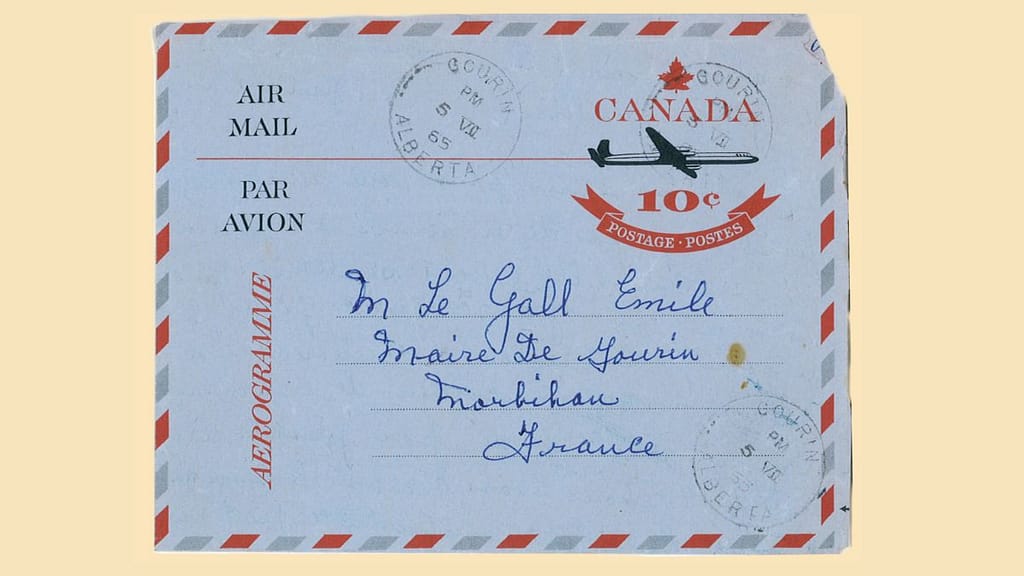 AIR
MAIL
PAR
AVION
AEROGRAMME
GOURIN
PM
5 VII
65
ALBERTA
CANADA
GOURIN
5 VII
10¢
POSTAGE · POSTES
M Le Gall Emile
Maire De Gourin
Morbihan
France
GOURIN
PM
5 VII
65
ALBERTA